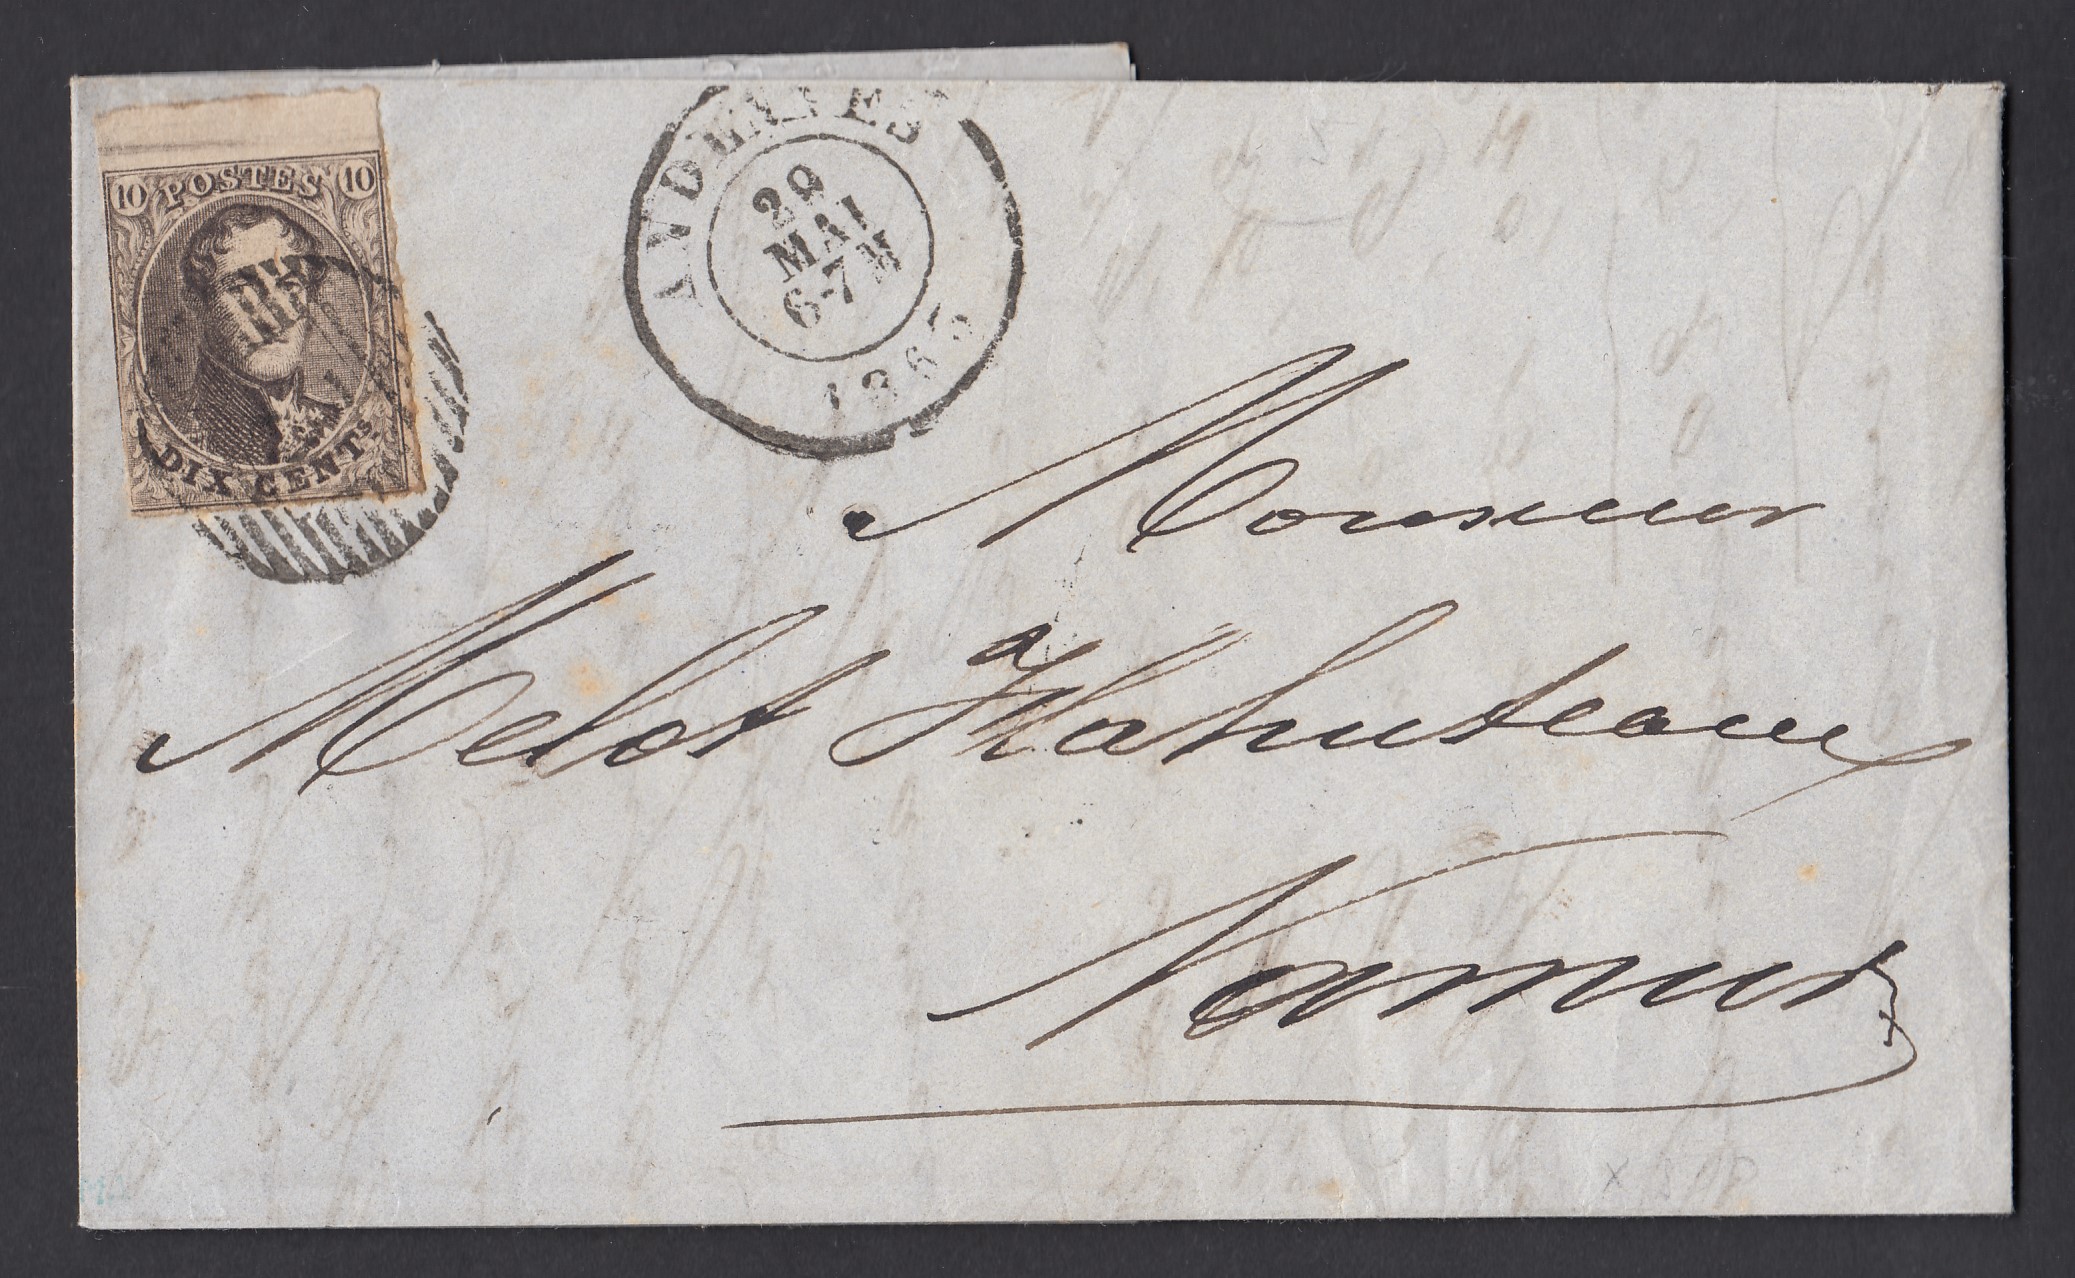 10 POSTES 10
DIX CENTS
ANDENNES
29
MAI
6-7 M
1863
Monsieur
Melot
Namur